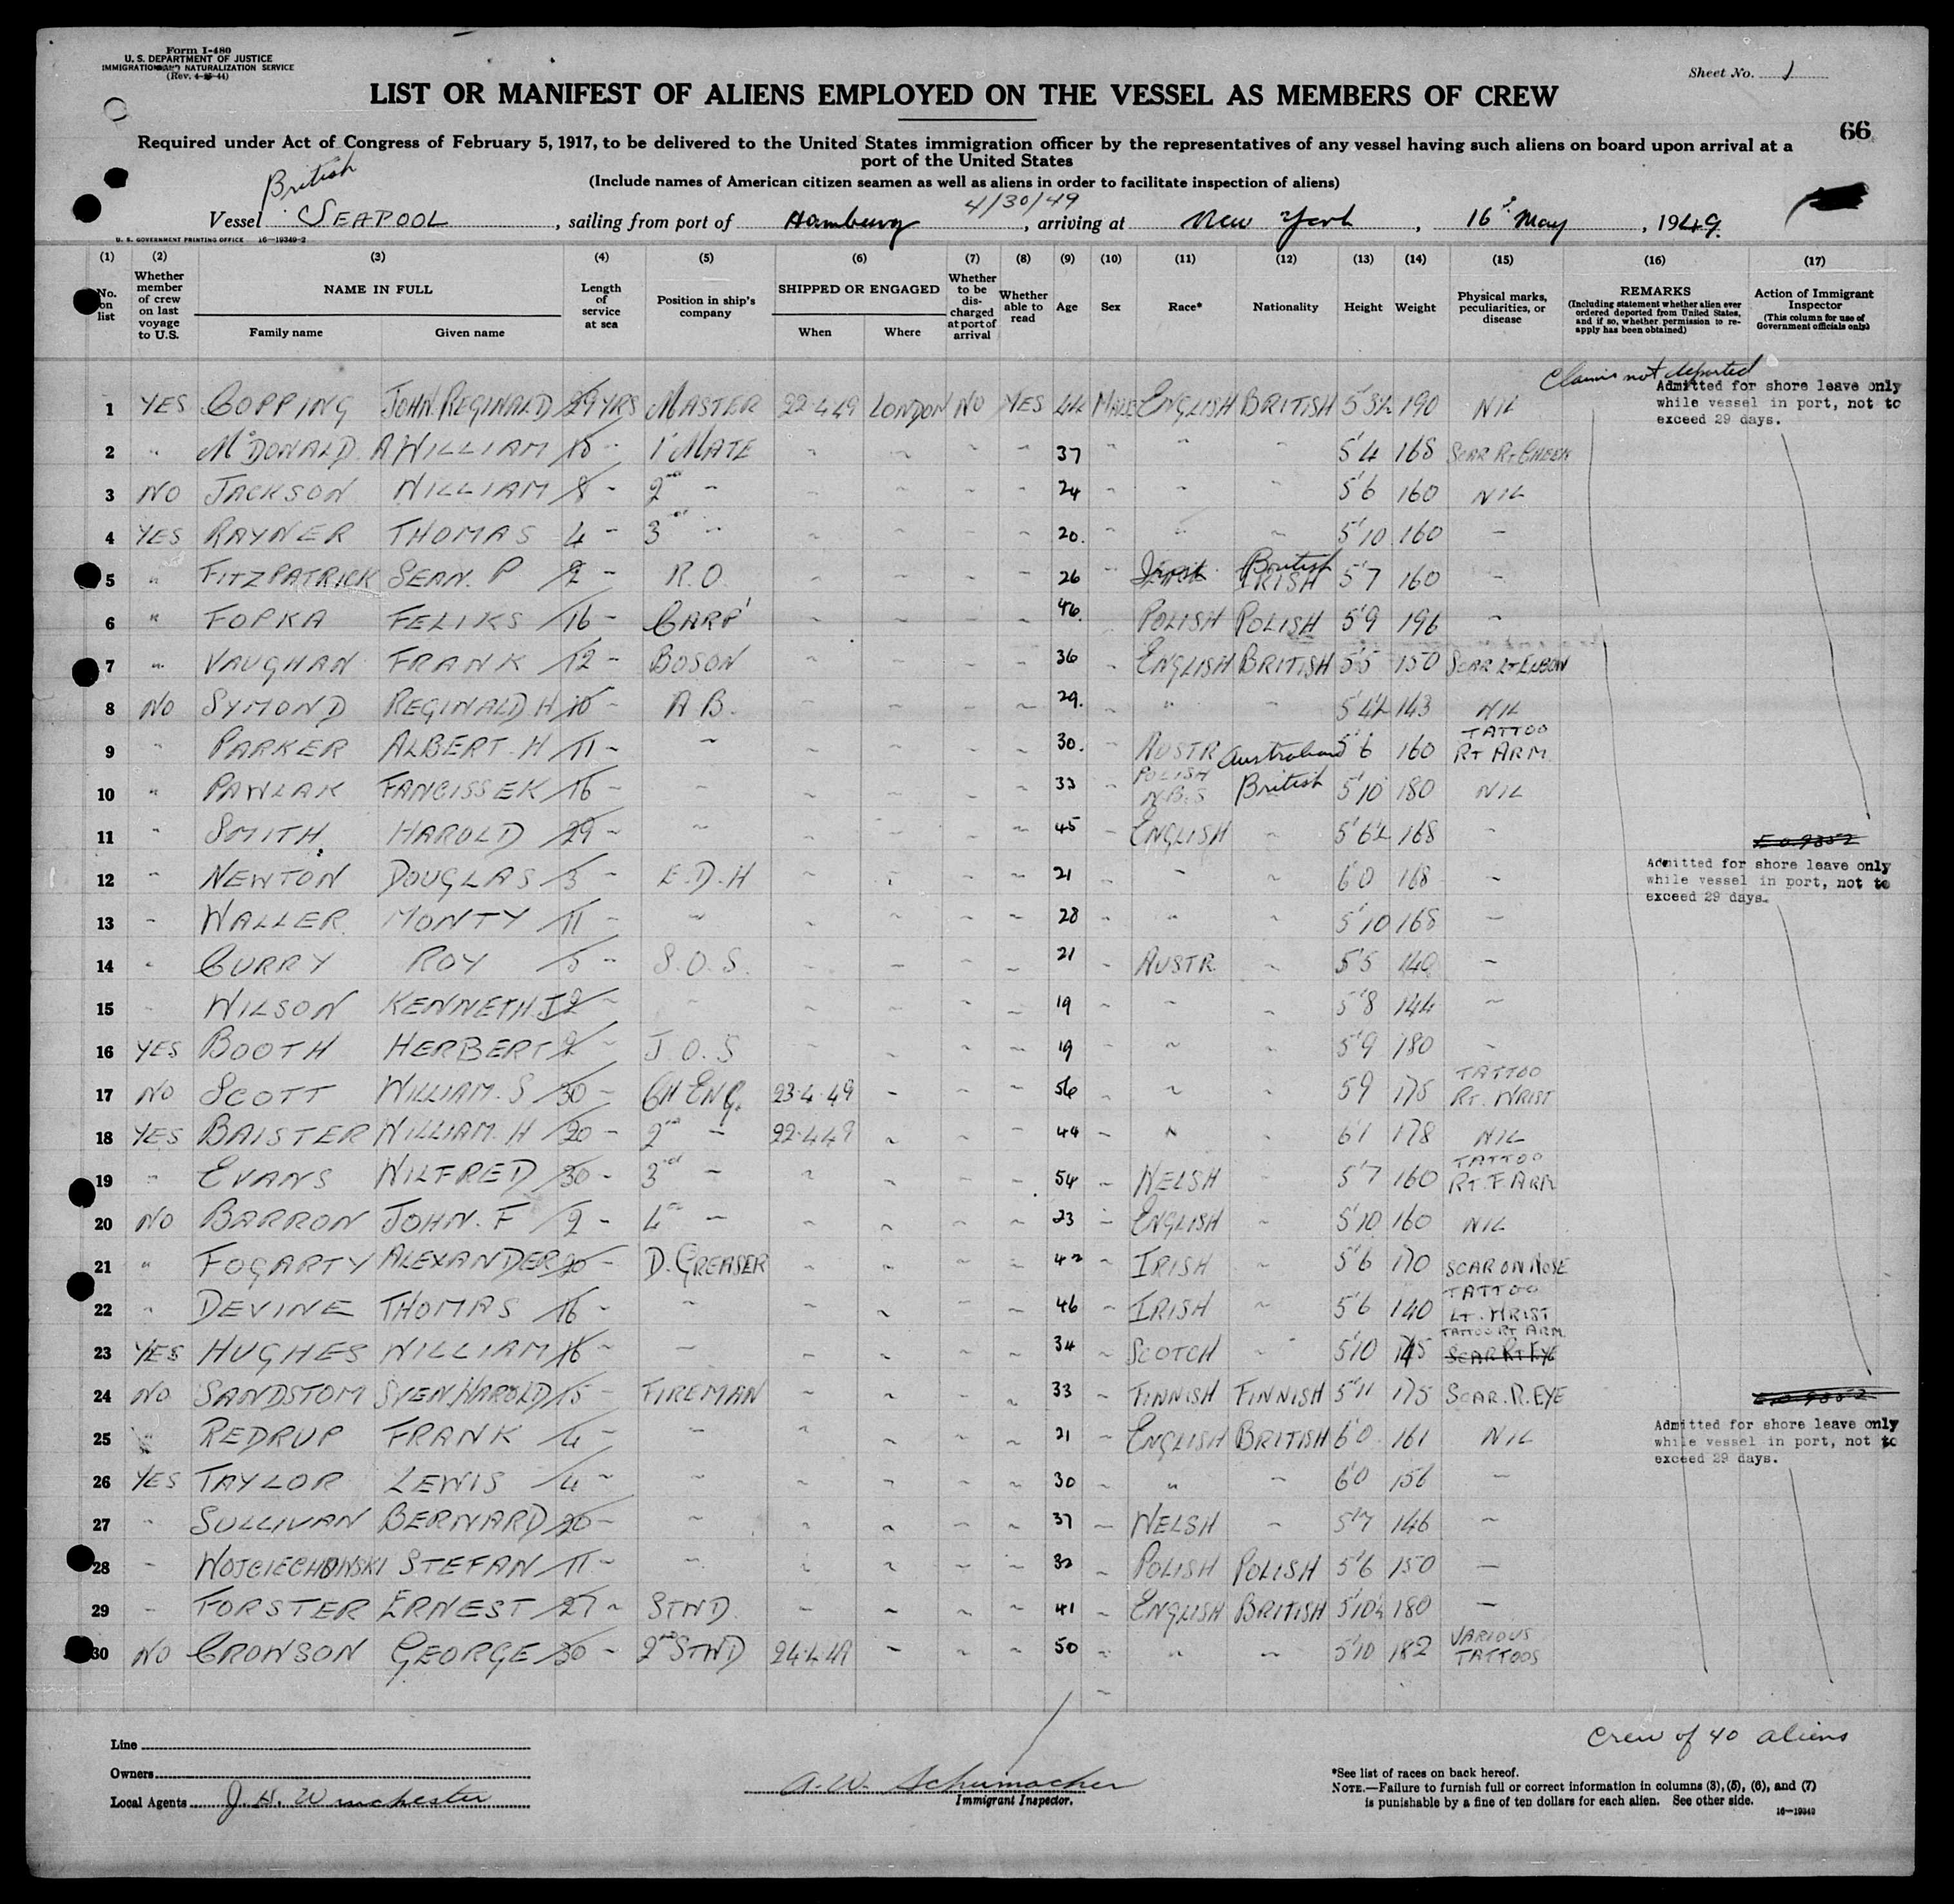 Form I-480
U. S. DEPARTMENT OF JUSTICE
IMMIGRATION AND NATURALIZATION SERVICE
(Rev. 4-15-44)
Sheet No. 1
LIST OR MANIFEST OF ALIENS EMPLOYED ON THE VESSEL AS MEMBERS OF CREW
66
Required under Act of Congress of February 5, 1917, to be delivered to the United States immigration officer by the representatives of any vessel having such aliens on board upon arrival at a
port of the United States
(Include names of American citizen seamen as well as aliens in order to facilitate inspection of aliens)
British
4/30/49
Vessel SEAPOOL, sailing from port of Hamburg, arriving at New York, 16 May, 1949.
U. S. GOVERNMENT PRINTING OFFICE 16—19349-2
(1) (2) (3) (4) (5) (6) (7) (8) (9) (10) (11) (12) (13) (14) (15) (16) (17)
No. on list
Whether member of crew on last voyage to U.S.
NAME IN FULL
Family name Given name
Length of service at sea
Position in ship's company
SHIPPED OR ENGAGED
When Where
Whether to be discharged at port of arrival
Whether able to read
Age Sex Race* Nationality Height Weight
Physical marks, peculiarities, or disease
REMARKS
(Including statement whether alien ever ordered deported from United States, and if so, whether permission to reapply has been obtained)
Action of Immigrant Inspector
(This column for use of Government officials only)
Claims not deported
Admitted for shore leave only
while vessel in port, not to
exceed 29 days.
1 YES COPPING JOHN REGINALD 29 YRS MASTER 22.4.49 LONDON NO YES 44 MALE ENGLISH BRITISH 5'3½ 190 NIL
2 " McDONALD A WILLIAM 18 - 1' MATE - - - - 37 - " - 5'4 168 SCAR RT CHEEK
3 NO JACKSON WILLIAM 8 - 2nd - - - - - 24 - - - 5'6 160 NIL
4 YES RAYNER THOMAS 4 - 3rd - - - - - 20. - " - 5'10 160 -
5 " FITZPATRICK SEAN. P 2 - R.O. - - - - 26 - Irish British IRISH 5'7 160 -
6 " FOPKA FELIKS 16 - CARP' - - - - 46. - POLISH POLISH 5'9 196 -
7 " VAUGHAN FRANK 12 - BOSON - - - - 36 - ENGLISH BRITISH 5'5 150 SCAR LT ELBOW
8 NO SYMOND REGINALD H 10 - A B. - - - - 29. - " - 5'4½ 143 NIL
9 - PARKER ALBERT. H 11 - - - - - - 30. - AUSTR Australian 5'6 160 TATTOO RT ARM
10 " PAWLAK FANCISSEK 16 - - - - - - 33 - POLISH N.B.S British 5'10 180 NIL
11 - SMITH HAROLD 29 - - - - - - 45 - ENGLISH - 5'6½ 168 -
E O 9352
Admitted for shore leave only
while vessel in port, not to
exceed 29 days.
12 - NEWTON DOUGLAS 3 - E.D.H - - - - 21 - - - 6'0 168 -
13 - WALLER MONTY 11 - - - - - - 28 - - - 5'10 168 -
14 - CURRY ROY 5 - S.O.S. - - - - 21 - AUSTR. - 5'5 140 -
15 - WILSON KENNETH.J 2 - - - - - - 19 - - - 5'8 144 -
16 YES BOOTH HERBERT 2 - J.O.S - - - - 19 - - - 5'9 180 -
17 NO SCOTT WILLIAM. S 30 - CH ENG. 23.4.49 - - - 56 - - - 5'9 175 TATTOO RT. WRIST
18 YES BAISTER WILLIAM. H 20 - 2nd - 22.4.49 - - - 44 - " - 6'1 178 NIL
19 - EVANS WILFRED 30 - 3rd - - - - - 54 - WELSH - 5'7 160 TATTOO RT. F. ARM
20 NO BARRON JOHN. F 2 - 4th - - - - - 23 - ENGLISH - 5'10 160 NIL
21 " FOGARTY ALEXANDER 20 - D. GREASER - - - - 42 - IRISH - 5'6 170 SCAR ON NOSE
22 - DEVINE THOMAS 16 - - - - - - 46 - IRISH - 5'6 140 TATTOO LT. WRIST
23 YES HUGHES WILLIAM 16 - - - - - - 34 - SCOTCH - 5'10 145 TATTOO RT ARM. SCAR RT EYE
24 NO SANDSTOM SVEN HAROLD 15 - FIREMAN - - - - 33 - FINNISH FINNISH 5'11 175 SCAR. R. EYE
E O 9352
Admitted for shore leave only
while vessel in port, not to
exceed 29 days.
25 " REDRUP FRANK 4 - - - - - - 21 - ENGLISH BRITISH 6'0 161 NIL
26 YES TAYLOR LEWIS 4 - - - - - - 30 - " - 6'0 156 -
27 - SULLIVAN BERNARD 20 - - - - - - 37 - WELSH - 5'7 146 -
28 - WOJCIECHOWSKI STEFAN 11 - - - - - - 32 - POLISH POLISH 5'6 150 -
29 - FORSTER ERNEST 27 - STWD. - - - - 41 - ENGLISH BRITISH 5'10½ 180 -
30 NO CROWSON GEORGE 30 - 2nd STWD 24.4.49 - - - 50 - - - 5'10 182 VARIOUS TATTOOS
Crew of 40 aliens
Line
Owners
Local Agents J. H. Winchester
A. W. Schumacher
Immigrant Inspector.
*See list of races on back hereof.
NOTE.—Failure to furnish full or correct information in columns (3), (5), (6), and (7)
is punishable by a fine of ten dollars for each alien. See other side.
16—19349